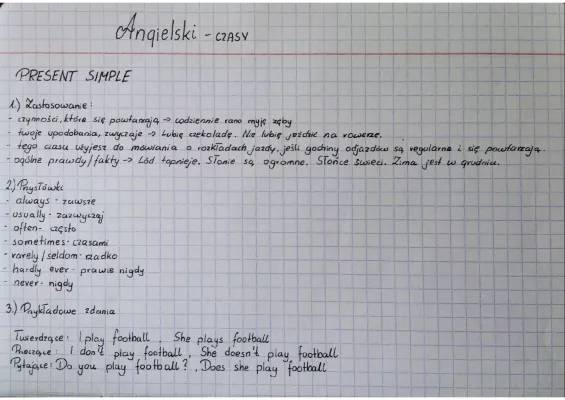 Angielski - CZASY
PRESENT SIMPLE
1.) Zastosowanie:
- czynności, które się powtarzają → codziennie rano myję zęby
- twoje upodobania, zwyczaje → Lubię czekoladę. Nie lubię jeździć na rowerze.
- tego czasu używasz do mówienia o rozkładach jazdy, jeśli godziny odjazdów są regularne i się powtarzają.
- ogólne prawdy/fakty → Lód topnieje. Słonie są ogromne. Słońce świeci. Zima jest w grudniu.
2.) Przysłówki
- always - zawsze
- usually - zazwyczaj
- often - często
- sometimes - czasami
- rarely / seldom - rzadko
- hardly ever - prawie nigdy
- never - nigdy
3.) Przykładowe zdania
Twierdzące: I play football, She plays football
Przeczące: I don't play football, She doesn't play football
Pytające: Do you play football?, Does she play football